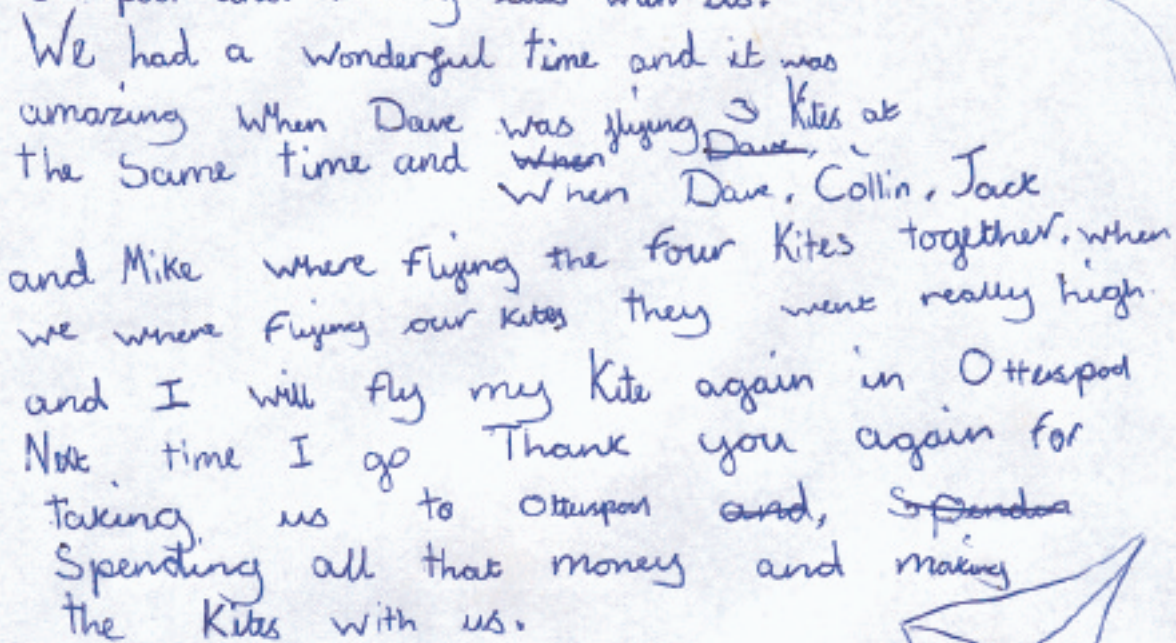 We had a wonderful time and it was
amazing when Dave was flying 3 Kites at
the Same time and when Dave,
When Dave, Collin, Jack
and Mike where flying the four Kites together. when
we where flying our kites they went really high.
and I will fly my Kite again in Otterspool
Next time I go Thank you again for
taking us to Otterspool and,
Spending all that money and making
the Kites with us.